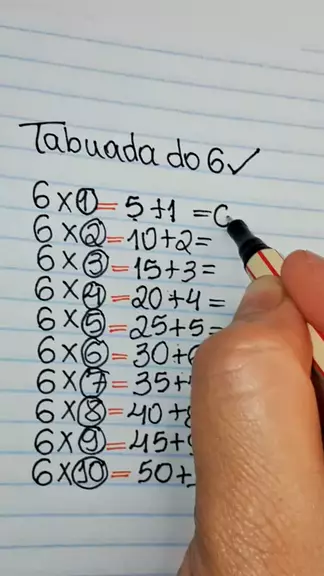 Tabuada do 6✓
6×1=5+1=6
6×2=10+2=
6×3=15+3=
6×4=20+4=
6×5=25+5=
6×6=30+
6×7=35+
6×8=40+
6×9=45+
6×10=50+